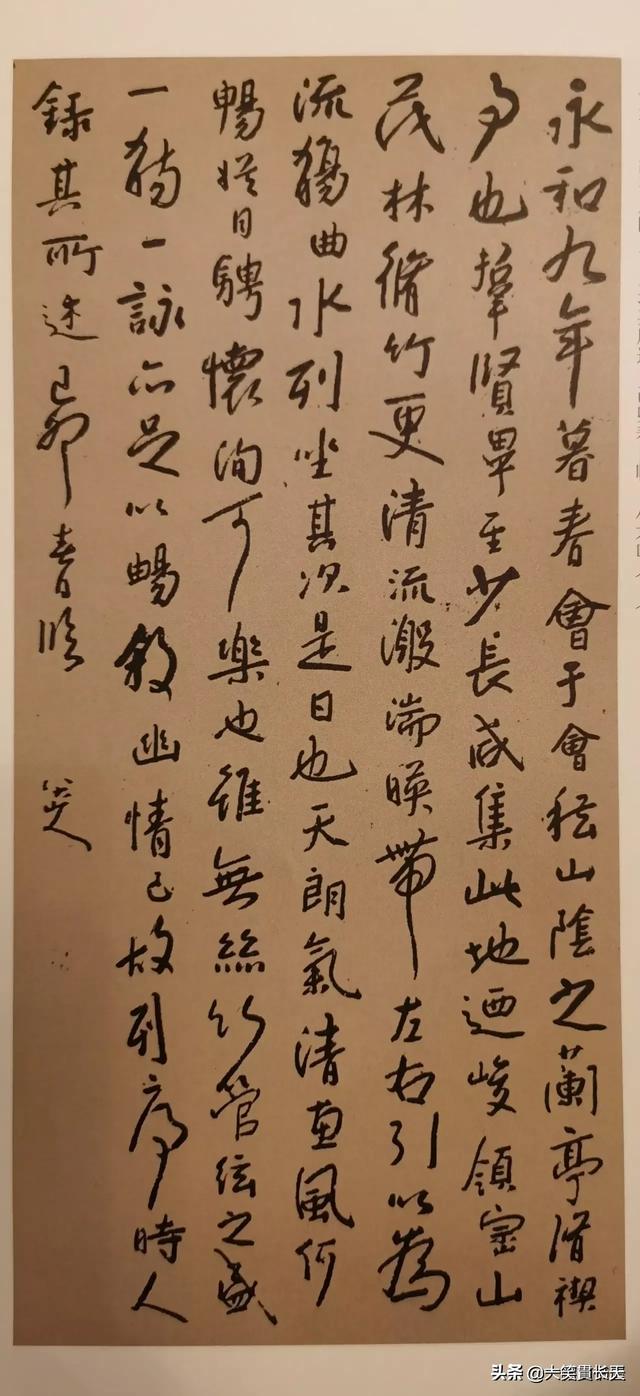 永和九年暮春會于會嵇山陰之蘭亭脩禊
事也羣賢畢至少長咸集此地迺峻領崇山
茂林脩竹更清流激湍暎帶左右引以為
流觴曲水列坐其次是日也天朗氣清惠風和
暢娛日騁懷洵可樂也雖無絲竹管弦之盛
一觴一詠亦足以暢敘幽情已故列序時人
錄其所述己卯春臨
头条 @大笑貫长天